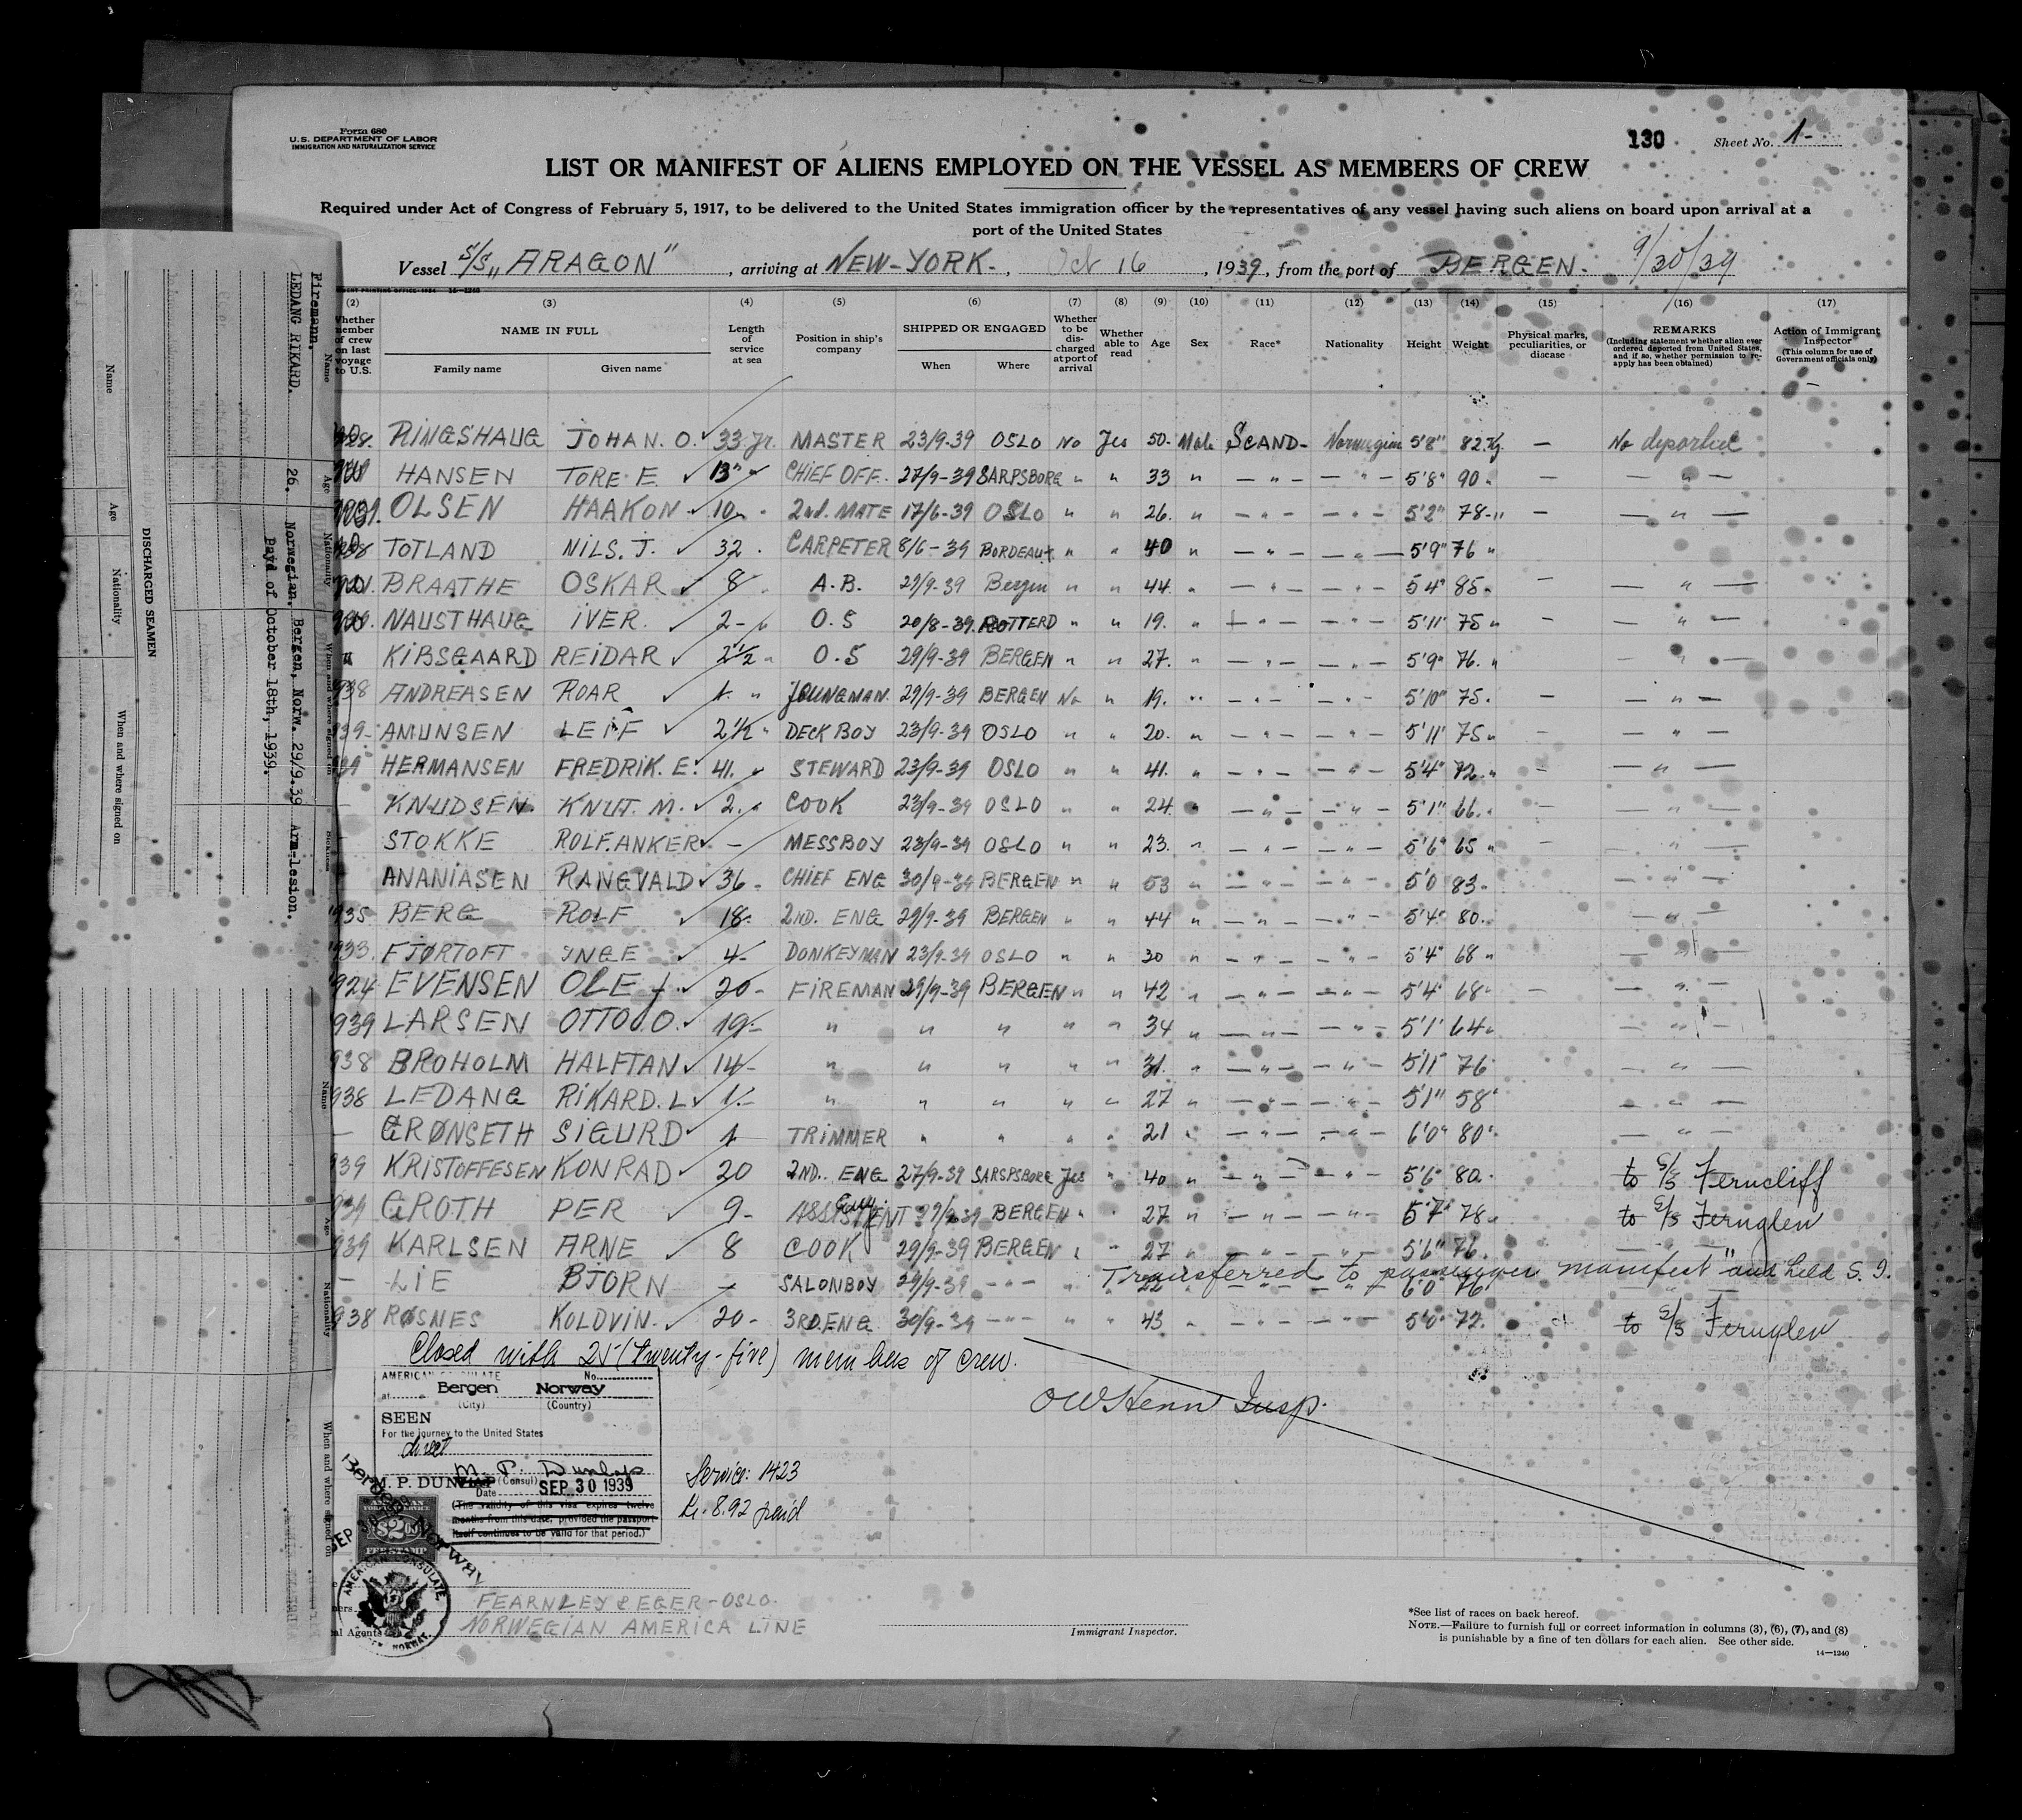 Form 680
U.S. DEPARTMENT OF LABOR
IMMIGRATION AND NATURALIZATION SERVICE
130 Sheet No. 1-
LIST OR MANIFEST OF ALIENS EMPLOYED ON THE VESSEL AS MEMBERS OF CREW
Required under Act of Congress of February 5, 1917, to be delivered to the United States immigration officer by the representatives of any vessel having such aliens on board upon arrival at a
port of the United States
Vessel S/S „ARAGON" , arriving at NEW-YORK- , Oct 16 , 1939, from the port of BERGEN. 9/30/39
(2) (3) (4) (5) (6) (7) (8) (9) (10) (11) (12) (13) (14) (15) (16) (17)
Whether member of crew on last voyage to U.S. NAME IN FULL Family name Given name Length of service at sea Position in ship's company SHIPPED OR ENGAGED When Where Whether to be discharged at port of arrival Whether able to read Age Sex Race* Nationality Height Weight Physical marks, peculiarities, or disease REMARKS (Including statement whether alien ever ordered deported from United States, and if so, whether permission to reapply has been obtained) Action of Immigrant Inspector (This column for use of Government officials only)
RINGSHAUG JOHAN. O. ✓ 33 yr. MASTER 23/9-39 OSLO No Yes 50- Male SCAND- Norwegian 5'8" 82 Kg. — No deported
HANSEN TORE E. ✓ 13 " CHIEF OFF. 27/9-39 SARPSBORG " " 33 " — " — — " — 5'8" 90 " — — " —
OLSEN HAAKON ✓ 10 " 2nd. MATE 17/6-39 OSLO " " 26. " — " — — " — 5'2" 78-" — — " —
TOTLAND NILS. J. ✓ 32 . CARPETER 8/6-39 BORDEAUX " " 40 " — " — — " — 5'9" 76 "
BRAATHE OSKAR ✓ 8 . A.B. 29/9-39 Bergen " " 44. " — " — — " — 5 4" 85. — — " —
NAUSTHAUG IVER. ✓ 2- " O.S 20/8-39. ROTTERD " " 19. " — " — — " — 5'11" 75 " — — " —
" KIBSGAARD REIDAR ✓ 2½ " O.S 29/9-39 BERGEN " " 27. " — " — — " — 5'9" 76. " — " —
938 ANDREASEN ROAR ✓ 1. " JOUNGMAN. 29/9-39 BERGEN No " 19. " — " — — " — 5'10" 75. — — " —
939- AMUNSEN LEIF ✓ 2½ " DECK BOY 23/9-39 OSLO " " 20. " — " — — " — 5'11" 75 " — — " —
939 HERMANSEN FREDRIK. E. ✓ 41. " STEWARD 23/9-39 OSLO " " 41. " — " — — " — 5'4" 72. " — — " —
— KNUDSEN. KNUT. M. ✓ 2. " COOK 23/9-39 OSLO " " 24. " — " — — " — 5'1" 66. — — " —
— STOKKE ROLF. ANKER ✓ — MESSBOY 23/9-39 OSLO " " 23. " — " — — " — 5'6" 65 " — — " —
ANANIASEN RANGVALD ✓ 36 - CHIEF ENG 30/9-39 BERGEN " " 53 " — " — — " — 5'0 83- — " —
935 BERG ROLF ✓ 18- 2ND. ENG 29/9-39 BERGEN " " 44 " — " — — " — 5'4" 80. — " —
933. FJØRTOFT YNGE ✓ 4- DONKEYMAN 23/9-39 OSLO " " 30 " — " — — " — 5'4" 68 " — " —
924 EVENSEN OLE J. ✓ 20- FIREMAN 29/9-39 BERGEN " " 42 " — " — — " — 5'4" 68 " — — " —
939 LARSEN OTTO O. ✓ 19- " " " " " 34 " — " — — " — 5'1" 64 " — " —
938 BROHOLM HALFTAN ✓ 14- " " " " " 31. " — " — — " — 5'11" 76 — " —
938 LEDANG RIKARD. L ✓ 1- " " " " " 27 " — " — — " — 5'1" 58 " — " —
— GRØNSETH SIGURD ✓ 1 TRIMMER " " " " 21 " — " — — " — 6'0" 80 " — " —
939 KRISTOFFESEN KONRAD ✓ 20 2ND. ENG 27/9-39 SARSPSBORG Yes " 40 " — " — — " — 5'6" 80. to S/S Ferncliff
939 GROTH PER ✓ 9- ASSISTENT 29/9-39 BERGEN " " 27 " — " — — " — 5'7" 78 " to S/S Fernglen
939 KARLSEN ARNE ✓ 8 COOK 29/9-39 BERGEN " " 27 " — " — — " — 5'6" 76. — " —
— LIE BJORN — SALONBOY 29/9-39 — " — " Transferred to passenger manifest and held S. I.
22 " — " — — " — 6'0" 76
938 RØSNES KOLDVIN. ✓ 20- 3RD. ENG 30/9-39 — " — " " 43 " — " — — " — 5'0" 72. to S/S Fernglen
Closed with 25 (twenty-five) members of crew.
AMERICAN CONSULATE No.
at Bergen Norway
(City) (Country)
SEEN
For the journey to the United States
direct
M. P. Dunlap
M. P. DUNLAP (Consul)
Date SEP 30 1939
(The validity of this visa expires twelve
months from this date, provided the passport
itself continues to be valid for that period.)
Insp.
Service: 1423
Kr. 8.92 paid
$2.00
FEE STAMP
Bergen, Norway
SEP 30
AMERICAN CONSULATE
BERGEN, NORWAY.
FEARNLEY & EGER - OSLO.
NORWEGIAN AMERICA LINE
Immigrant Inspector.
*See list of races on back hereof.
NOTE.—Failure to furnish full or correct information in columns (3), (6), (7), and (8)
is punishable by a fine of ten dollars for each alien. See other side.
14—1240
DISCHARGED SEAMEN
Name Age Nationality When and where signed on
Firemann.
LEDANG RIKARD. 26. Norwegian. Bergen, Norw. 29/9.39 Arm-lesion.
Payd of October 18th, 1939.